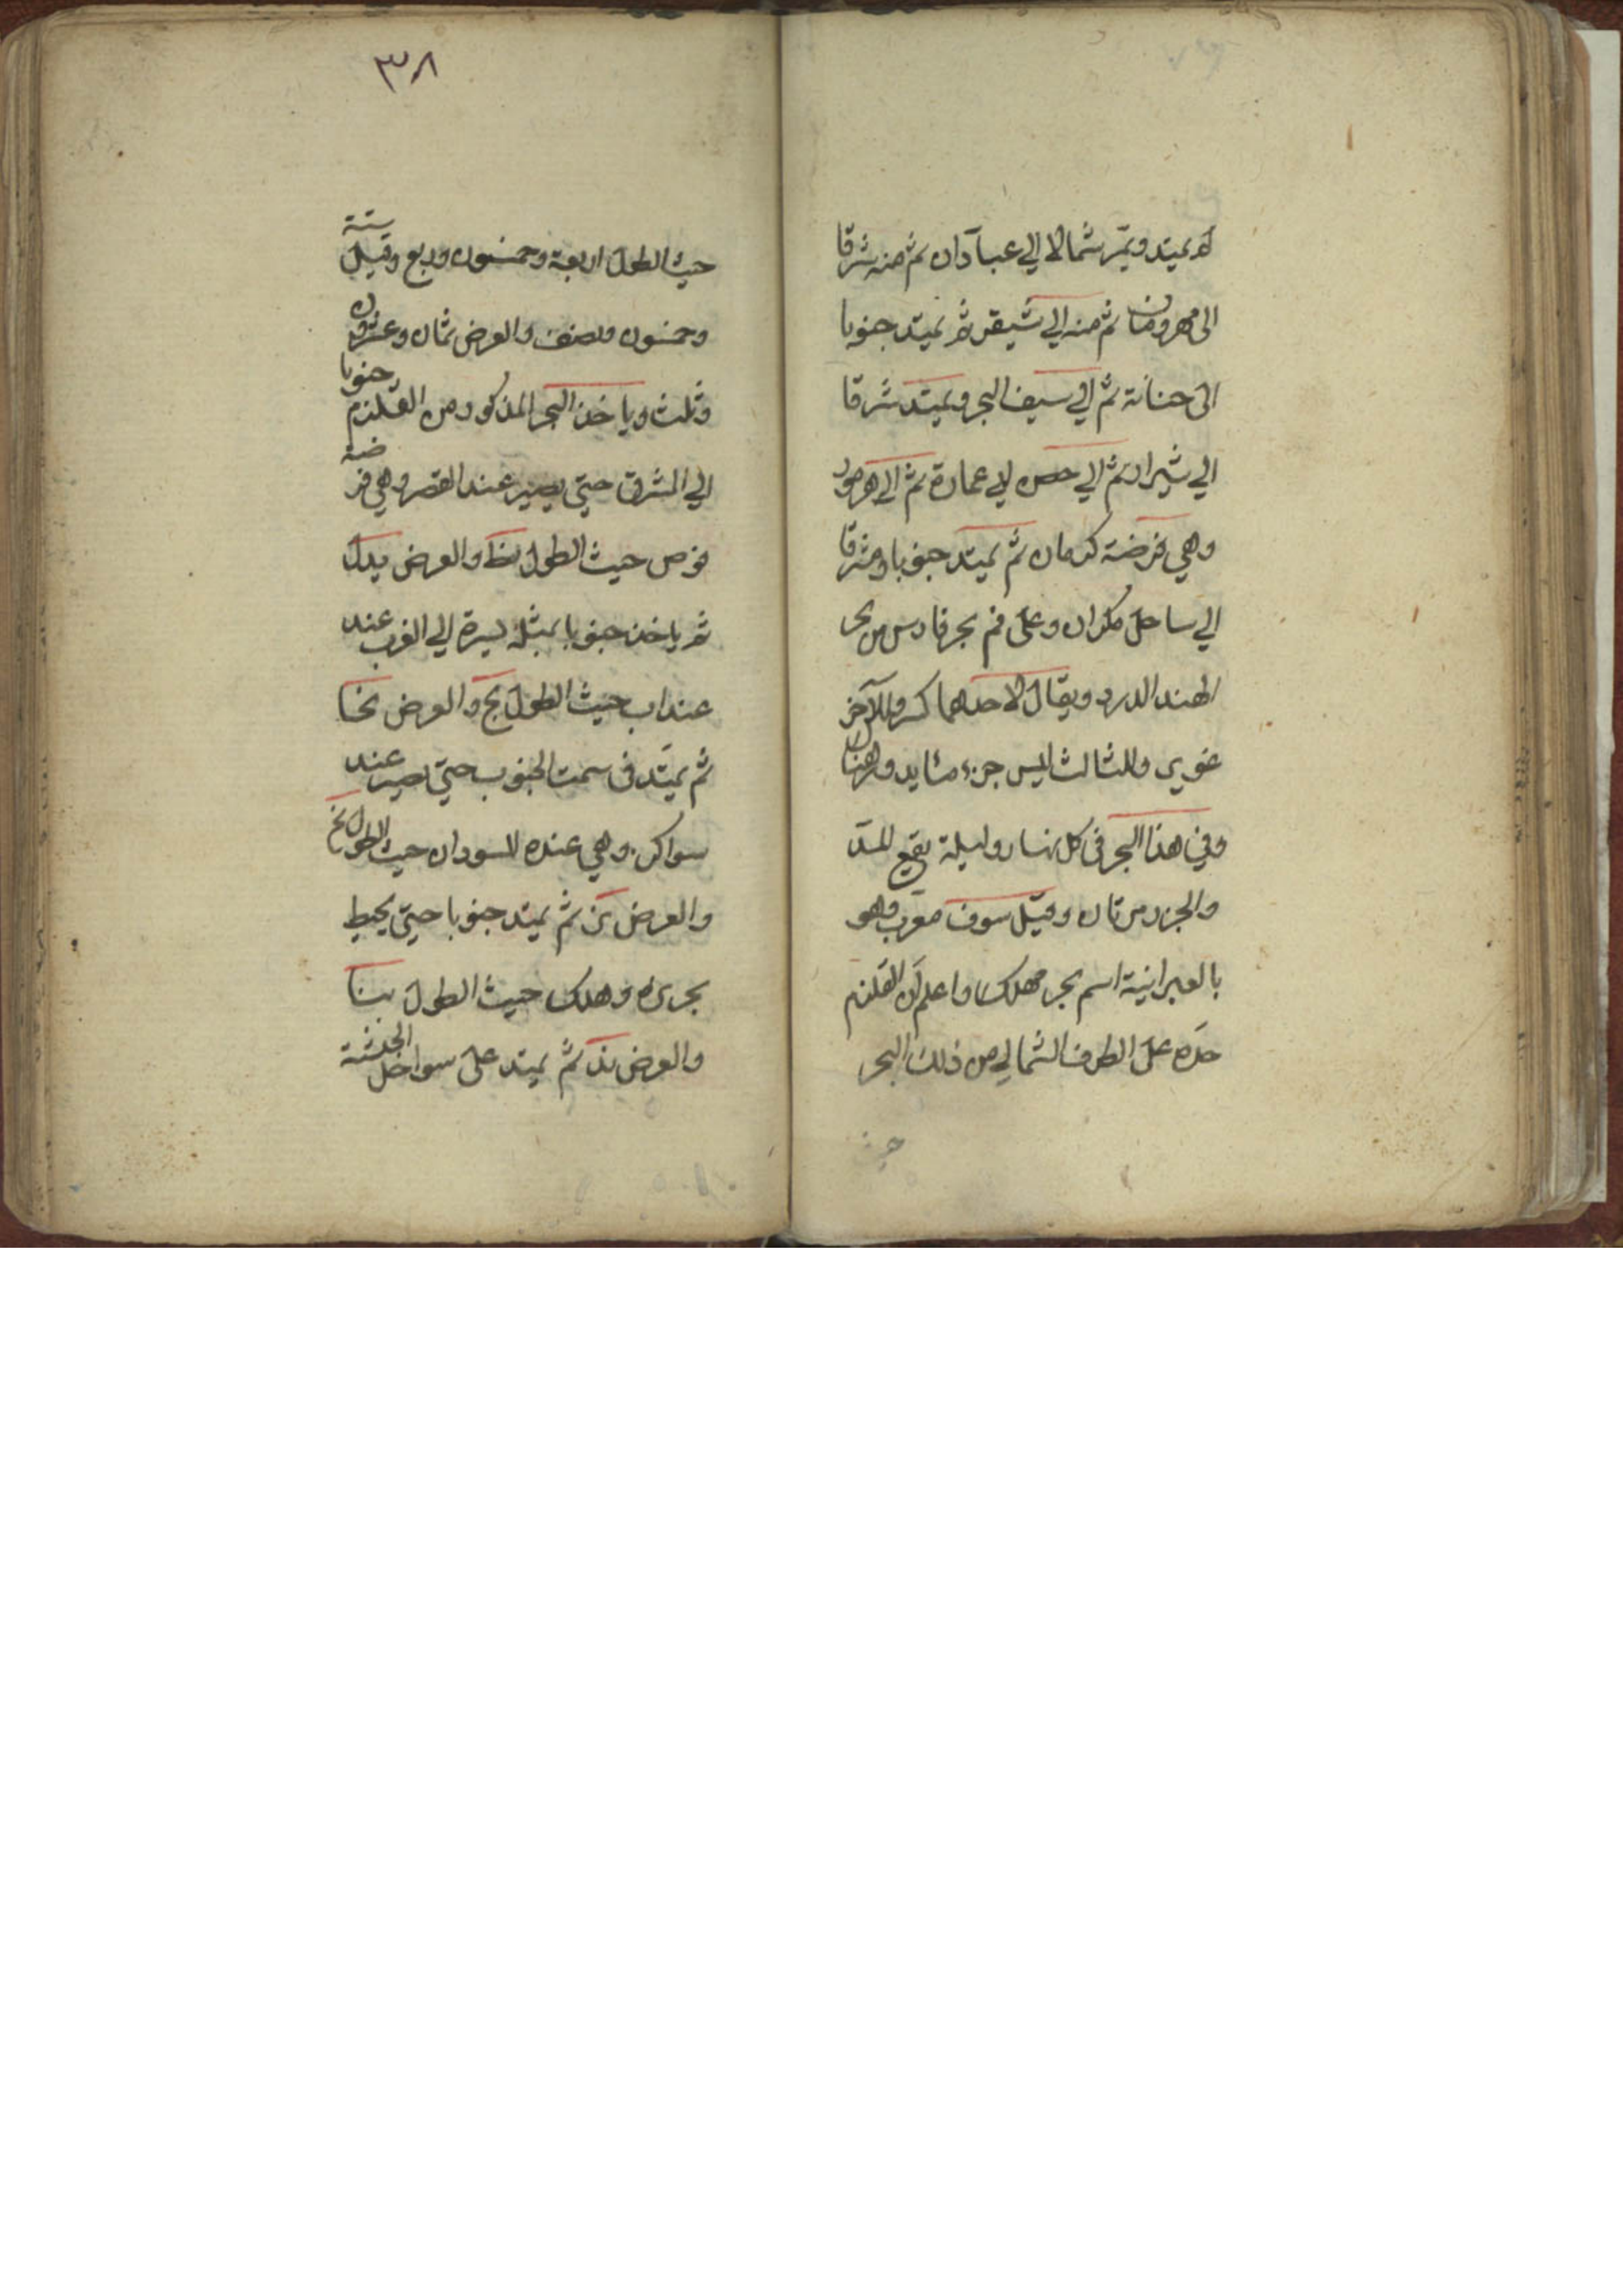 ثم يمتد ويمر شمالا الي عبادان ثم منه شرقا
الى مهروبان ثم منه الي شيقر ثم يمتد جنوبا
الى حنانة ثم الي سيف البحر ويمتد شرقا
الي شيران ثم الي حصن لابي عمارة ثم الي هرموز
وهي فرضة كرمان ثم يمتد جنوبا ومشرقا
الي ساحل مكران وعلى فم بحر فارس من بحر
الهند الدرد ويقال لاحدهما كسر وللآخر
عوير وللثالث ليس جزء
وفي هذا البحر في كل نهار وليلة يقع المد
والجزر مرتان وقيل سوف معرب وهو
بالعبرانية اسم بحر مهلك واعلم ان القلزم
حده على الطرف الشمالي من ذلك البحر
٣٨
حيث الطول اربعة وخمسون وربع وقيل ستة
وخمسون ونصف والعرض ثمان وعشرون
وثلث وياخذ البحر المذكور من القلزم جنوبا
الي المشرق حتي يصير عند القصر وهي فرضة
قوص حيث الطول نط والعرض
ثم ياخذ جنوبا يسيرة الي الغرب عند
عنداب حيث الطول نح والعرض
ثم يمتد في سمت الجنوب حتي يصير عند
سواكن وهي عنده للسودان حيث الطول نح
والعرض ثم يمتد جنوبا حتي يحيط
وهلك حيث الطول
والعرض يد ثم يمتد على سواحل الحبشة